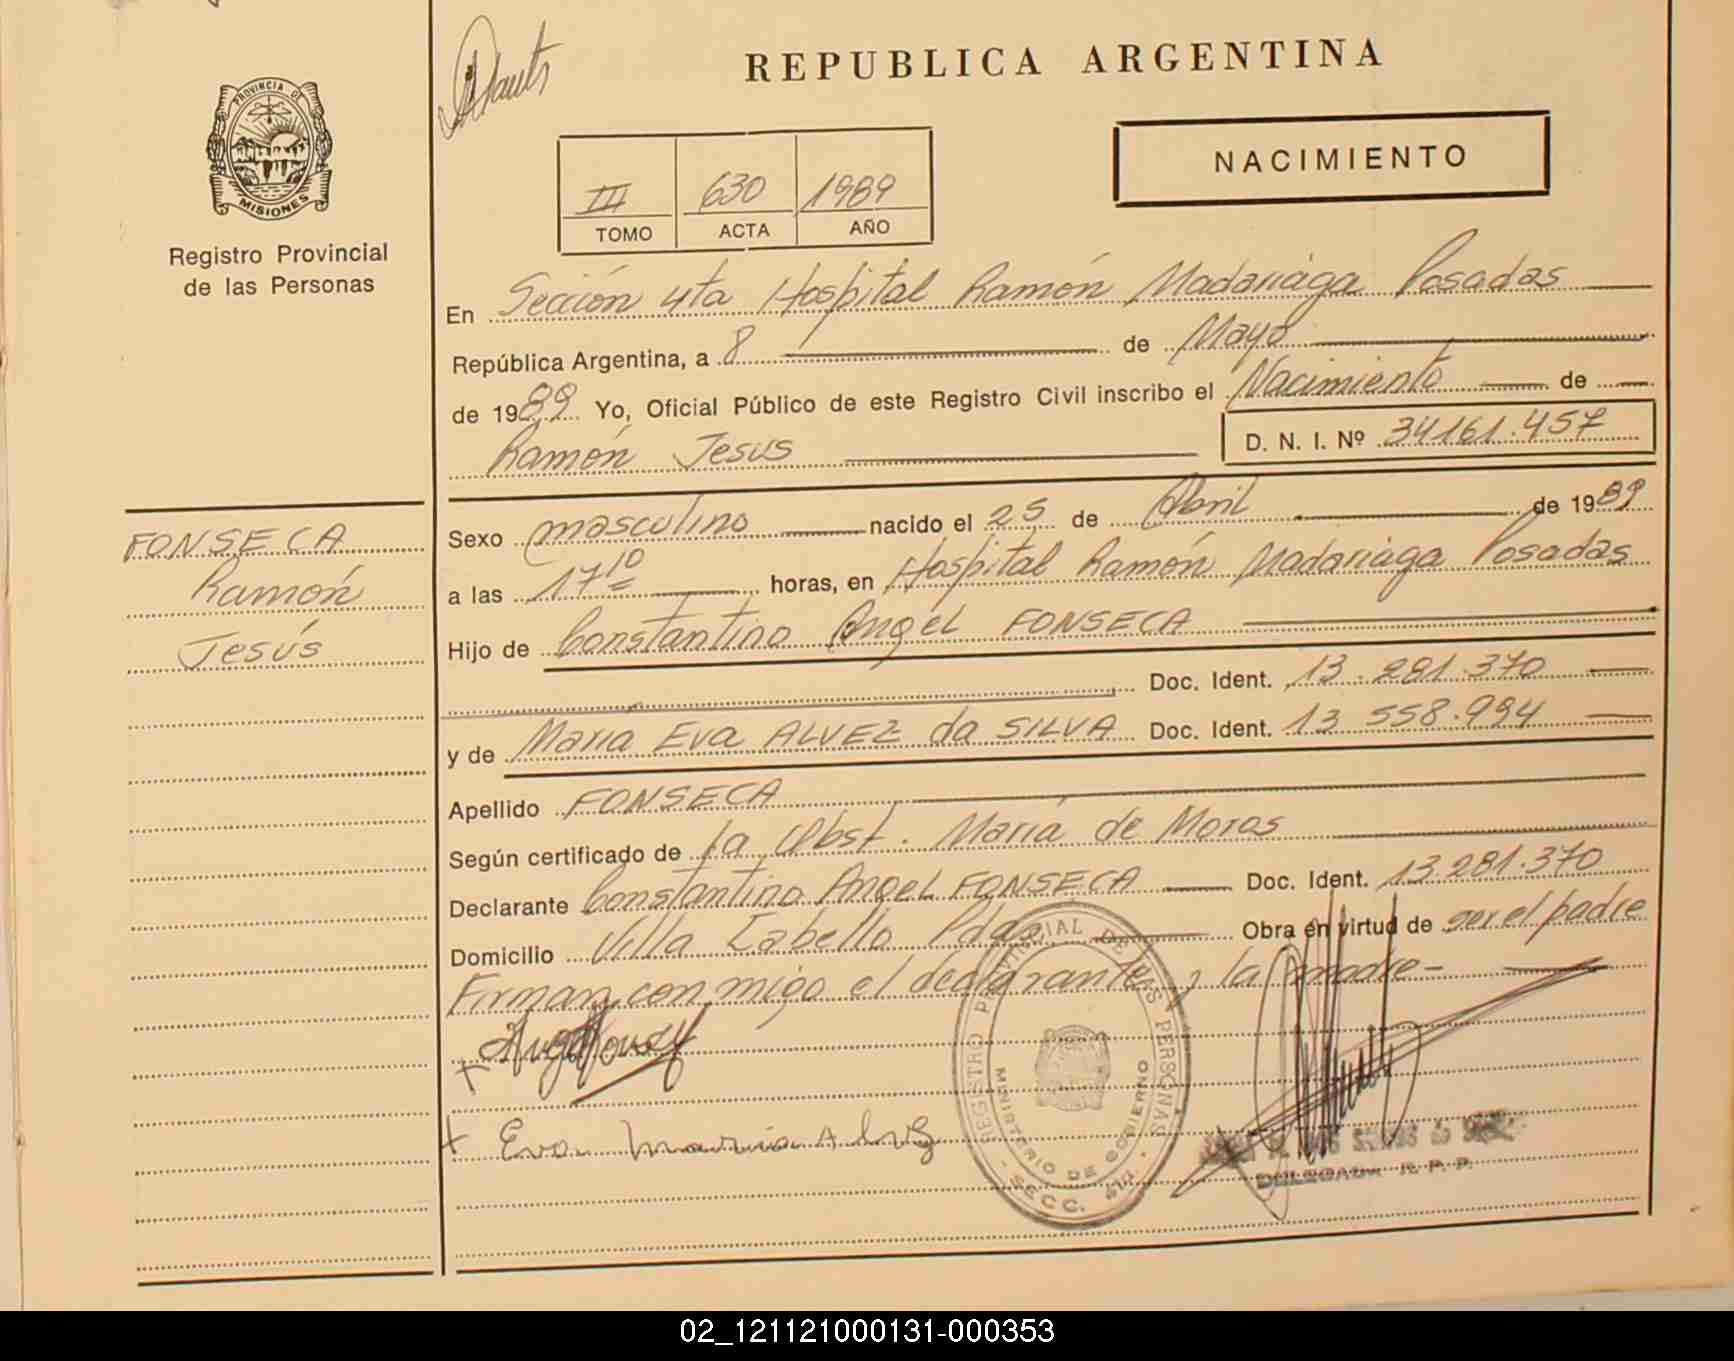 PROVINCIA DE
MISIONES
Registro Provincial
de las Personas
REPUBLICA ARGENTINA
NACIMIENTO
III 630 1989
TOMO ACTA AÑO
En Sección 4ta Hospital Ramón Madariága Posadas
República Argentina, a 8 de Mayo
de 1989 Yo, Oficial Público de este Registro Civil inscribo el Nacimiento de
Ramón Jesus D. N. I. Nº 34161.457
FONSECA
Ramón
Jesús
Sexo masculino nacido el 25 de Abril de 1989
a las 17 10 horas, en Hospital Ramón Madariága Posadas
Hijo de Constantino Angel FONSECA
Doc. Ident. 13.281.370
y de María Eva ALVEZ da SILVA Doc. Ident. 13 558.994
Apellido FONSECA
Según certificado de la Obst. María de Moros
Declarante Constantino Angel FONSECA Doc. Ident. 13.281.370
Domicilio Villa Cabello Pdas Obra en virtud de ser el padre
Firman conmigo el declarante y la madre-
REGISTRO PROVINCIAL DE LAS PERSONAS
MINISTERIO DE GOBIERNO
SECC. 4ta.
Eva Maria Alvez
DELEGADA R. P. P.
02_121121000131-000353